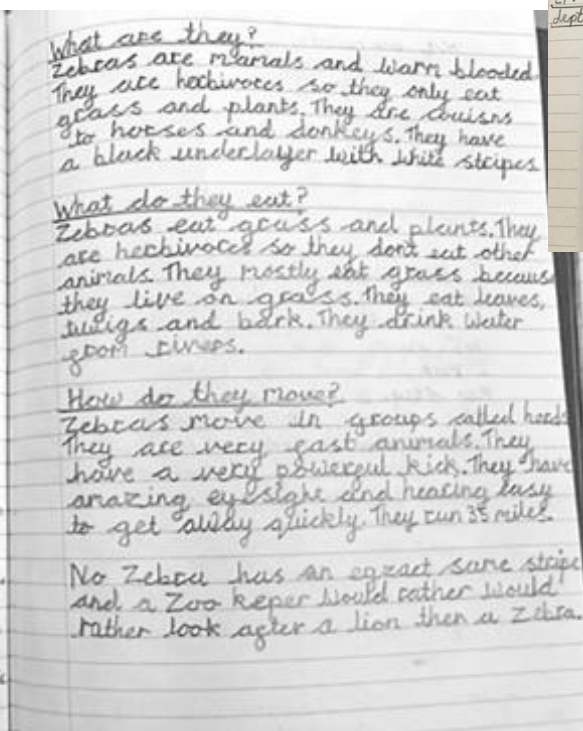 What are they?
Zebras are mamals and warm blooded
They are herbivores so they only eat
grass and plants. They are couisns
to horses and donkeys. They have
a black underlayer with white stripes
What do they eat?
Zebras eat grass and plants. They
are herbivores so they dont eat other
animals. They mostly eat grass becaus
they live on grass. They eat leaves,
twigs and bark. They drink water
from rivers.
How do they move?
Zebras move in groups called herds
They are very fast animals. They
have a very powerful kick. They have
amazing eyesight and hearing easy
to get away quickly. They run 35 miles.
No Zebra has an egzact same stripe
and a Zoo keper would rather would
rather look after a lion then a Zebra.
dept